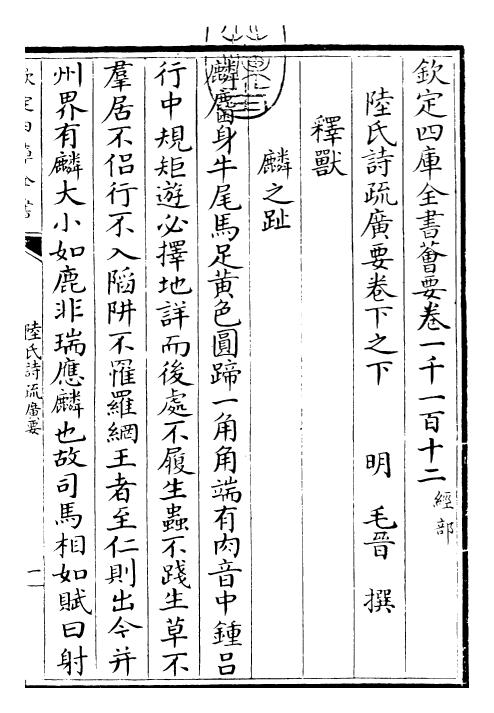 欽定四庫全書薈要卷一千一百十二 經部
陸氏詩疏廣要卷下之下 明 毛晉 撰
釋獸
麟之趾
麟麕身牛尾馬足黃色圓蹄一角角端有肉音中鍾呂
行中規矩遊必擇地詳而後處不履生蟲不踐生草不
羣居不侶行不入陷阱不罹羅網王者至仁則出今并
州界有麟大小如鹿非瑞應麟也故司馬相如賦曰射
陸氏詩疏廣要
一